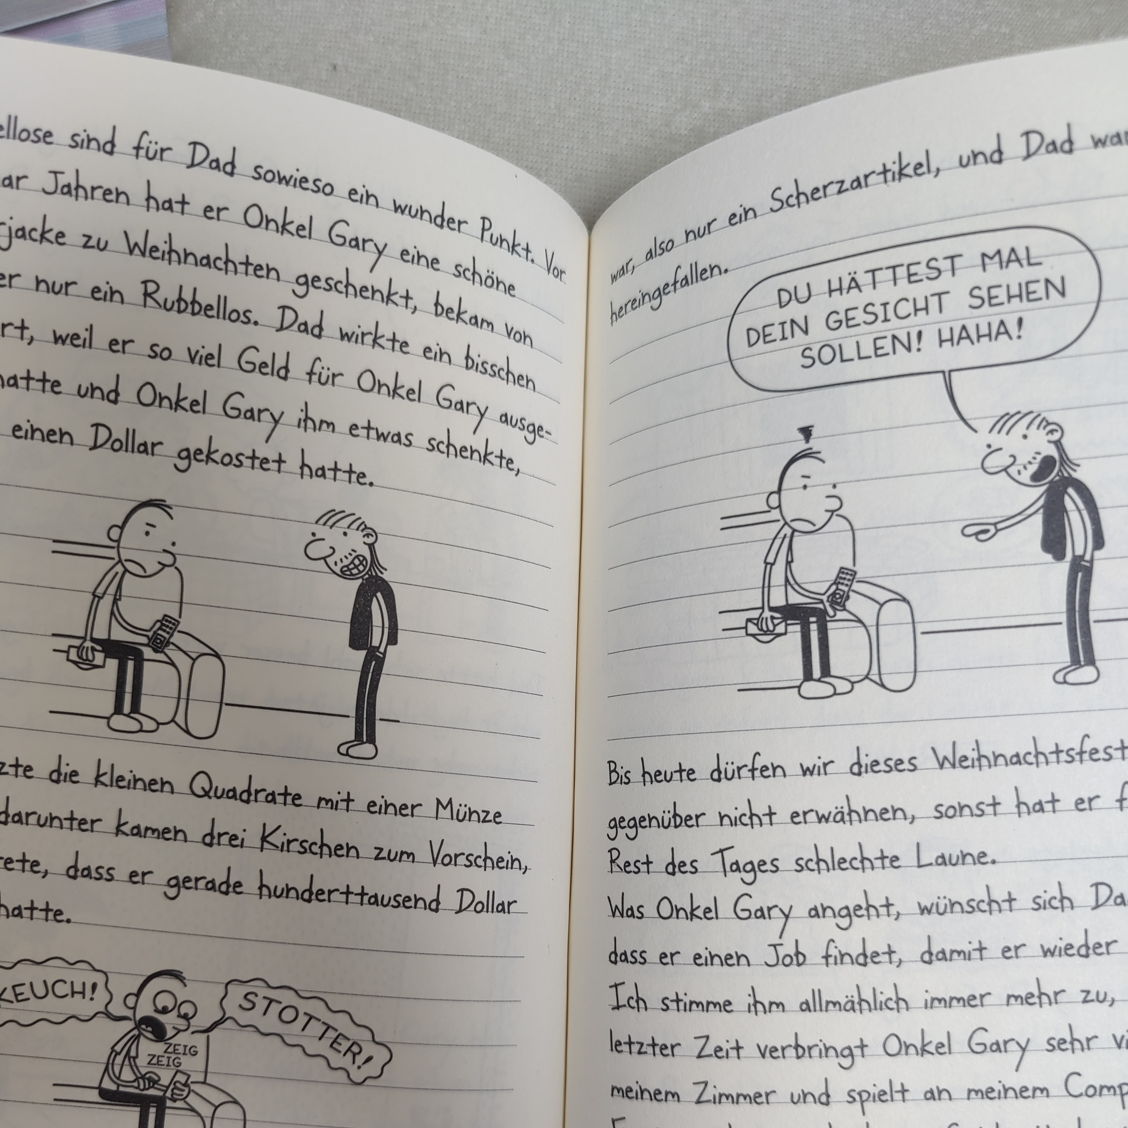 sind für Dad sowieso ein wunder Punkt. Vor
Jahren hat er Onkel Gary eine schöne
zu Weihnachten geschenkt, bekam von
nur ein Rubbellos. Dad wirkte ein bisschen
weil er so viel Geld für Onkel Gary ausge-
und Onkel Gary ihm etwas schenkte,
einen Dollar gekostet hatte.
die kleinen Quadrate mit einer Münze
darunter kamen drei Kirschen zum Vorschein,
dass er gerade hunderttausend Dollar
hatte.
KEUCH!
STOTTER!
ZEIG
ZEIG
war, also nur ein Scherzartikel, und Dad war
hereingefallen.
DU HÄTTEST MAL
DEIN GESICHT SEHEN
SOLLEN! HAHA!
Bis heute dürfen wir dieses Weihnachtsfest
gegenüber nicht erwähnen, sonst hat er
Rest des Tages schlechte Laune.
Was Onkel Gary angeht, wünscht sich
dass er einen Job findet, damit er wieder
Ich stimme ihm allmählich immer mehr zu,
letzter Zeit verbringt Onkel Gary sehr
meinem Zimmer und spielt an meinem